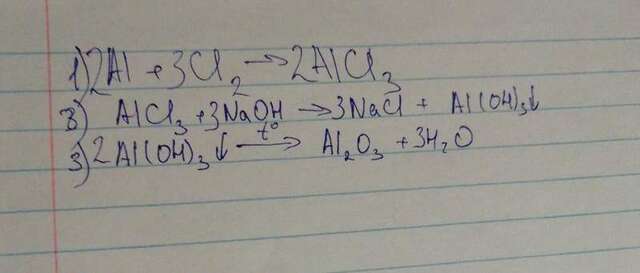 1) 2Al + 3Cl₂ → 2AlCl₃
3) AlCl₃ + 3NaOH → 3NaCl + Al(OH)₃↓
3) 2Al(OH)₃↓ t°→ Al₂O₃ + 3H₂O